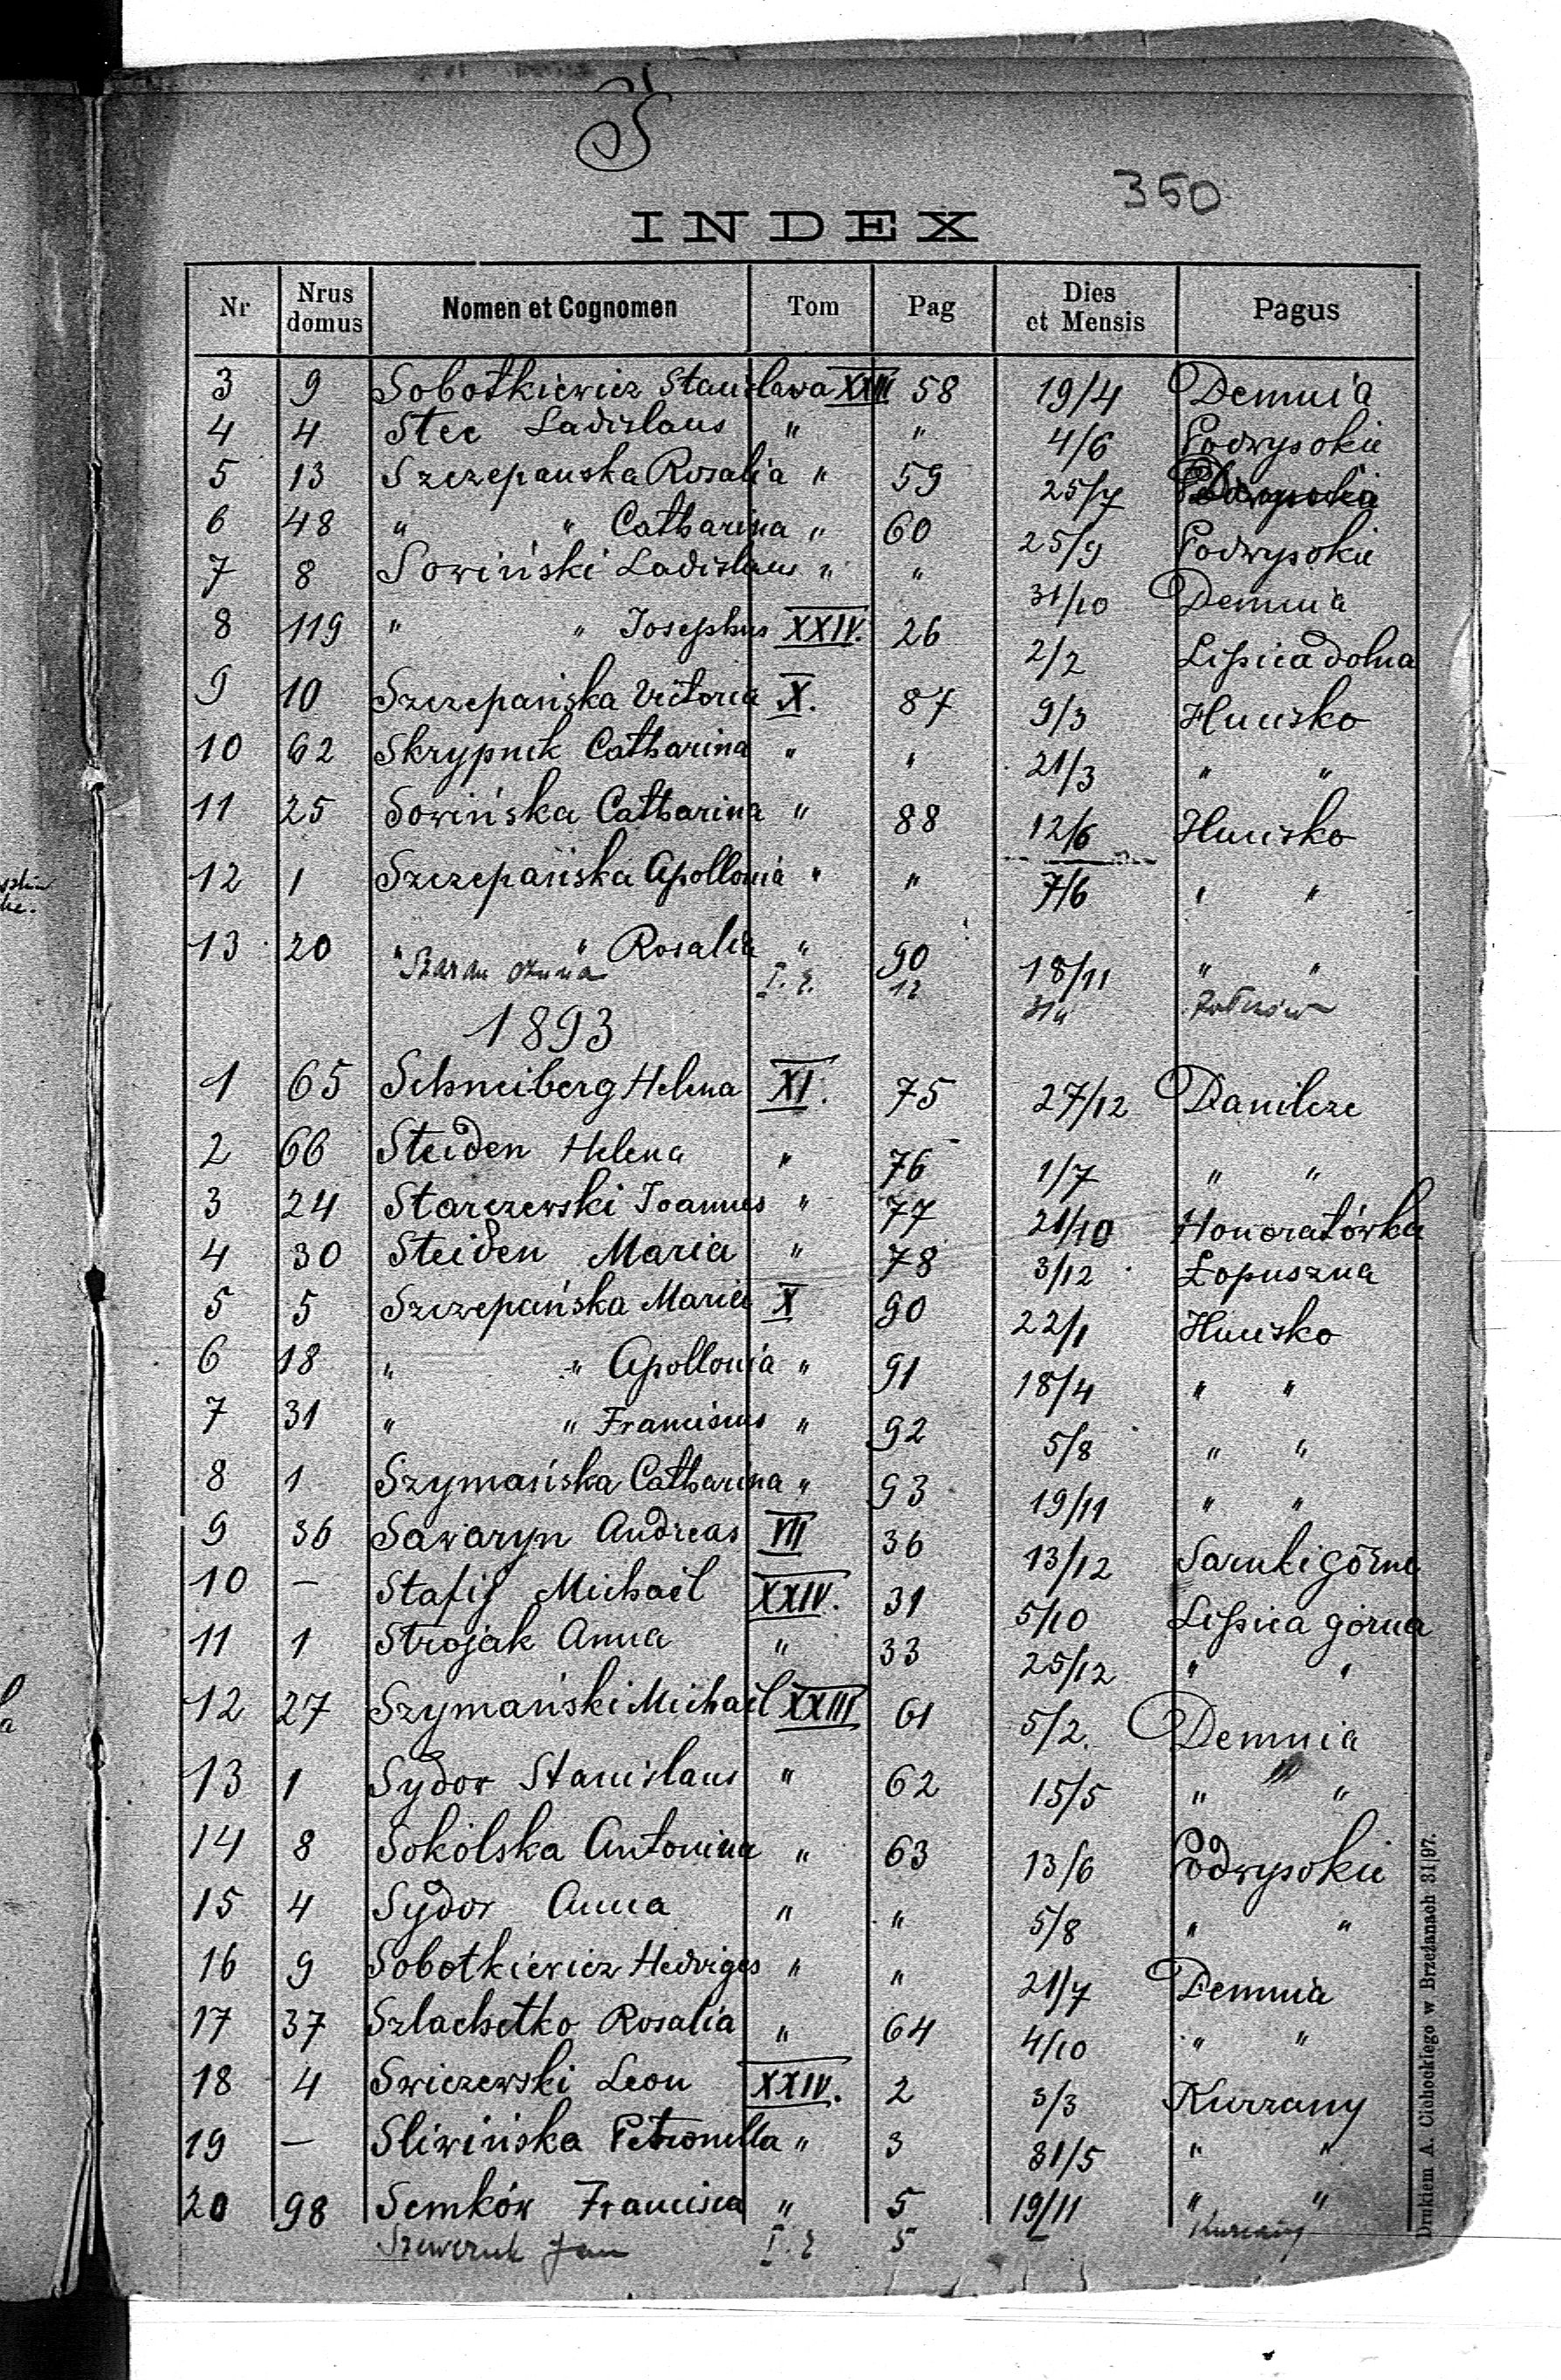 S
350
INDEX
Nr Nrus domus Nomen et Cognomen Tom Pag Dies et Mensis Pagus
3 9 Sobotkiewicz Stanislava XXIII 58 19/4 Demnia
4 4 Stec Ladislaus " " 4/6 Podwysokie
5 13 Szczepanska Rosalia " 59 25/7
6 48 " " Catharina " 60 25/9 Podwysokie
7 8 Sowiński Ladislaus " " 31/10 Demnia
8 119 " " Josephus XXIV. 26 2/2 Lipica dolna
9 10 Szczepańska Victoria X. 87 9/3 Hucisko
10 62 Skrypnik Catharina " " 21/3 " "
11 25 Sowińska Catharina " 88 12/6 Hucisko
12 1 Szczepańska Apollonia " " 7/6 " "
13 20 " " Rosalia " 90 18/11 " "
Anna I. 2. 12
1893
1 65 Schneiberg Helena XI. 75 27/12 Danilcze
2 66 Steiden Helena " 76 1/7 " "
3 24 Starczewski Joannes " 77 21/10 Honoratówka
4 30 Steiden Maria " 78 3/12 Łopuszna
5 5 Szczepańska Maria X 90 22/1 Hucisko
6 18 " " Apollonia " 91 18/4 " "
7 31 " " Franciscus " 92 5/8 " "
8 1 Szymańska Catharina " 93 19/11 " "
9 36 Sawaryn Andreas VII 36 13/12 Sarnki górne
10 – Stafij Michaël XXIV. 31 5/10 Lipica górna
11 1 Strojak Anna " 33 25/12 " "
12 27 Szymański Michaël XXIII 61 5/2. Demnia
13 1 Sydor Stanislaus " 62 15/5 " "
14 8 Sokólska Antonina " 63 13/6 Podwysokie
15 4 Sydor Anna " " 5/8 " "
16 9 Sobotkiewicz Hedviges " " 21/7 Demnia
17 37 Szlachetko Rosalia " 64 4/10 " "
18 4 Swiczewski Leon XXIV. 2 3/3 Kurzany
19 – Sliwińska Petronella " 3 31/5 " "
20 98 Semków Francisca " 5 19/11 " "
Szewczuk Jan I. 2 5 Kurzany
Drukiem A. Cichockiego w Brzeżanach 31|97.